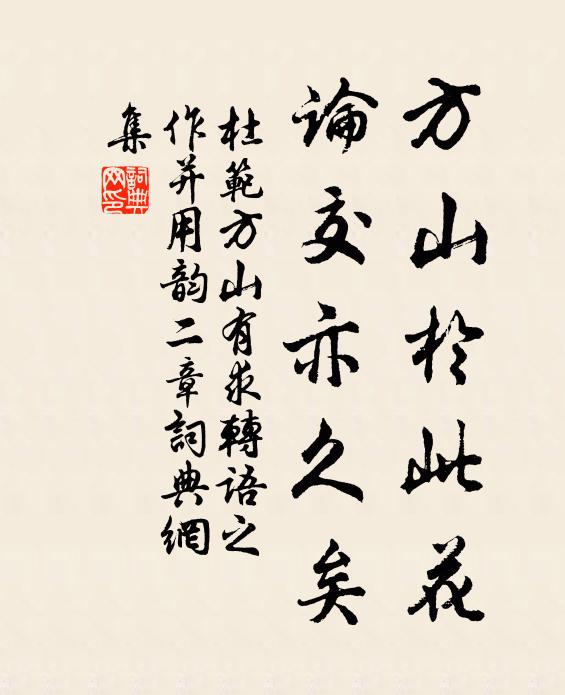 方山於此花
論交亦久矣
杜範方山有求轉語之
作并用韵二章詞典網
集
詞典
网印